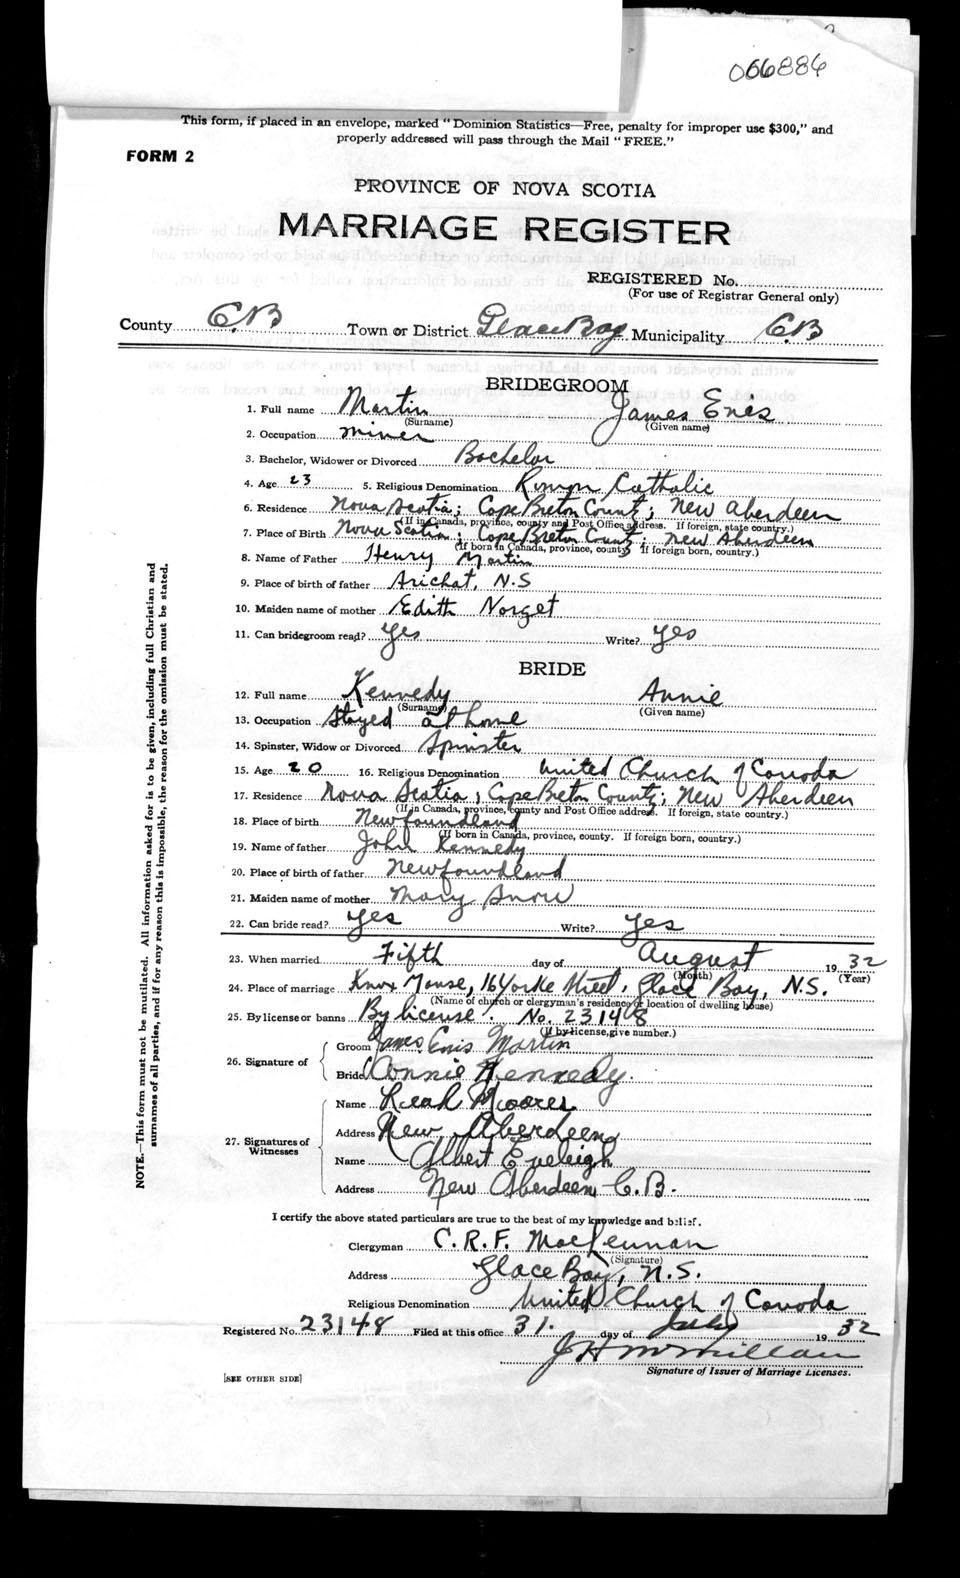 066886
This form, if placed in an envelope, marked "Dominion Statistics—Free, penalty for improper use $300," and
properly addressed will pass through the Mail "FREE."
FORM 2
PROVINCE OF NOVA SCOTIA
MARRIAGE REGISTER
REGISTERED No.
(For use of Registrar General only)
County C.B Town or District Glace Bay Municipality C.B
BRIDEGROOM
1. Full name Martin James Enis
(Surname) (Given name)
2. Occupation miner
3. Bachelor, Widower or Divorced Bachelor
4. Age 23 5. Religious Denomination Roman Catholic
6. Residence Nova Scotia; Cape Breton County; New Aberdeen
(If in Canada, province, county and Post Office address. If foreign, state country.)
7. Place of Birth Nova Scotia; Cape Breton County; New Aberdeen
(If born in Canada, province, county If foreign born, country.)
8. Name of Father Henry Martin
9. Place of birth of father Arichat, N.S
10. Maiden name of mother Edith Norget
11. Can bridegroom read? Yes Write? Yes
BRIDE
12. Full name Kennedy Annie
(Surname) (Given name)
13. Occupation Stayed at home
14. Spinster, Widow or Divorced Spinster
15. Age 20 16. Religious Denomination United Church of Canada
17. Residence Nova Scotia; Cape Breton County; New Aberdeen
(If in Canada, province, county and Post Office address. If foreign, state country.)
18. Place of birth Newfoundland
(If born in Canada, province, county. If foreign born, country.)
19. Name of father John Kennedy
20. Place of birth of father Newfoundland
21. Maiden name of mother Mary Snow
22. Can bride read? Yes Write? Yes
23. When married Fifth day of August 1932
(Month) (Year)
24. Place of marriage Knox Manse, 16 Yorke Street, Glace Bay, N.S.
(Name of church or clergyman's residence or location of dwelling house)
25. By license or banns By license. No. 23148
(If by license, give number.)
26. Signature of
Groom James Enis Martin
Bride Annie Kennedy.
27. Signatures of Witnesses
Name Leah Moores
Address New Aberdeen
Name Albert Eveleigh
Address New Aberdeen C.B.
I certify the above stated particulars are true to the best of my knowledge and belief.
Clergyman C.R.F. MacLennan
(Signature)
Address Glace Bay, N.S.
Religious Denomination United Church of Canada
Registered No. 23148 Filed at this office 31. day of July 1932
J H McMillan
Signature of Issuer of Marriage Licenses.
[SEE OTHER SIDE]
NOTE.—This form must not be mutilated. All information asked for is to be given, including full Christian and
surnames of all parties, and if for any reason this is impossible, the reason for the omission must be stated.